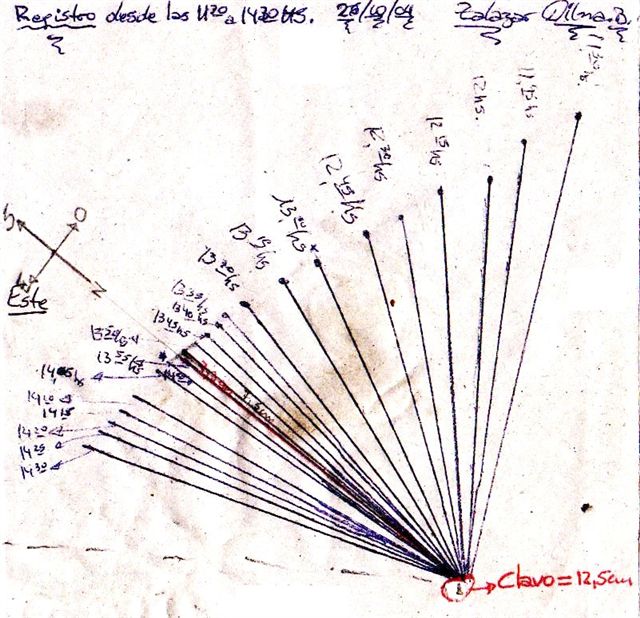 Registro desde las 11 30 a 14 30 HS. 28/10/04 Zalazar Dilma.B.
11 30 hs.
11,45 hs
12 hs.
12 15 hs
12,30 hs
12,45 hs
13,00 hs
13 15 hs
13 20 hs
13 35 hs
13 40 hs
13 45 hs
13 55 hs
14,05 hs
14 10
14 15
14 20
14 25
14 30
S
O
N
Este
7,5 cm
Clavo = 12,5 cm